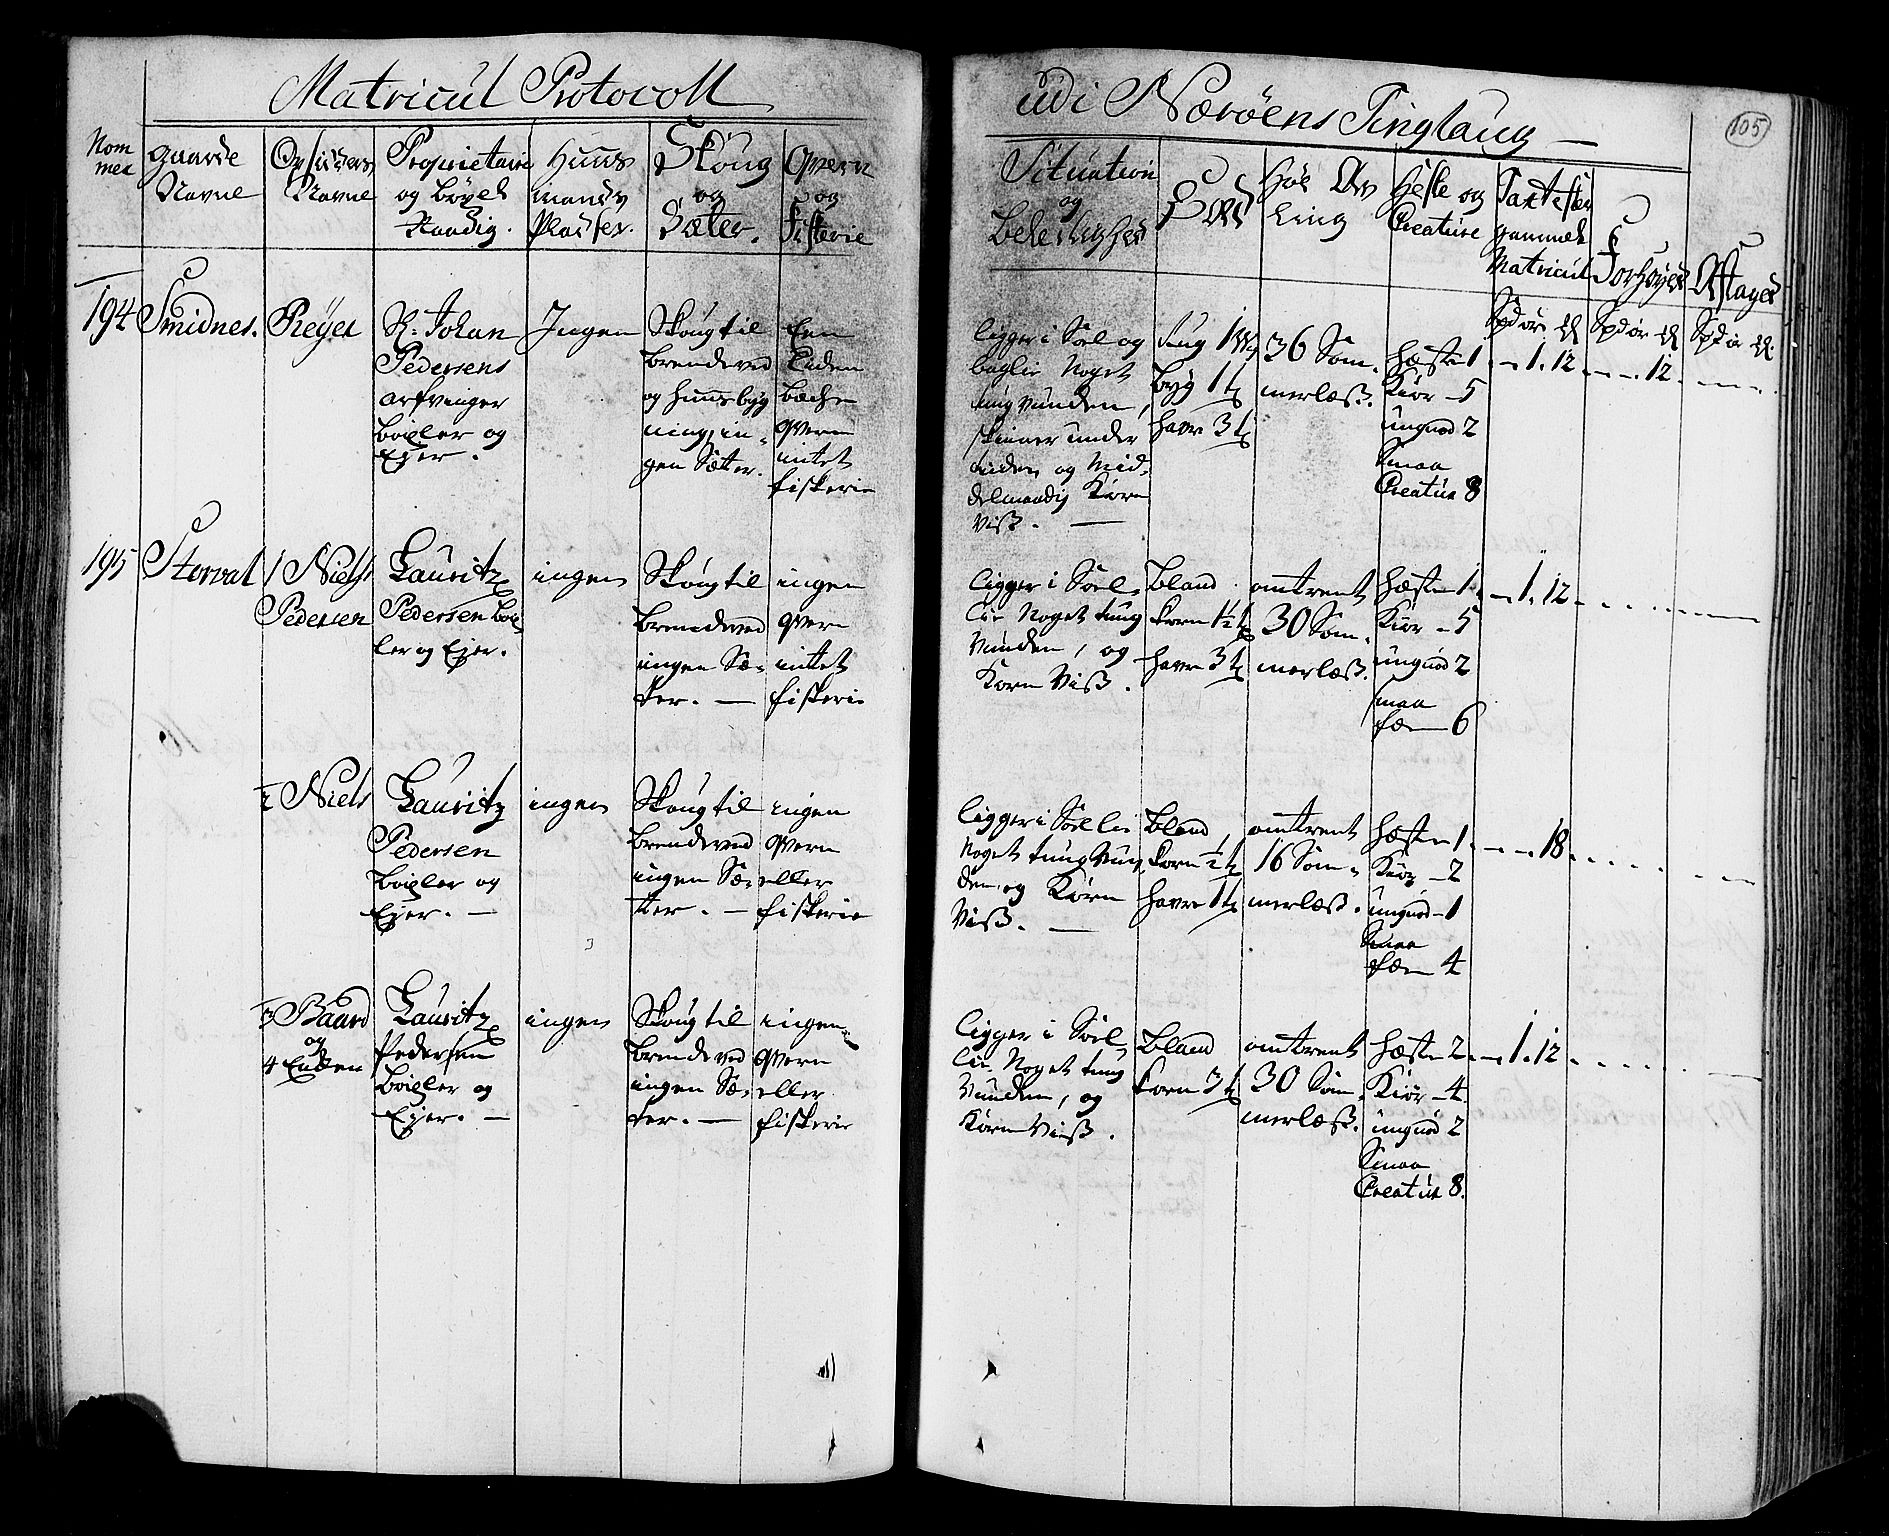 Matricul Protocoll
udi Nærøens Tinglaug
105
Nom
mer
gaarde
Navne
Opsidders
Navne
Proprietair
og bøxel
Raadig.
Huus
mands
Pladser.
Skoug
og
Sæter.
Qvern
og
Fiskerie
Situation
og
Beleilighed
Sæd
Høe Av
ling
Heste og
Creature
Taxt efter
gammel
Matricul
Forhøyed
Aftaged
Spd ør
Spd ør
Spd ør
194
Smidnes.
Reyer
H. Johan
Pedersens
arfvinger
böxler og
Ejer.
Ingen
Skoug til
brendeved
og huusbyg
ning, in-
gen Sæter.
Een
liden
bæche
qvern
intet
fiskerie
ligger i Soel og
baglie Noget
tung vunden,
under
og Mid-
delmaadig Korn
Viß.
byg 1 t
havre 3 t
36 Som-
merlæß.
hæste 1
Kiør - 5
ungnød 2
Smaa
Creatur 8
- 1. 12
- - 12
195
Storval
1 Niels
Pedersen
Lauritz
Pedersen böx-
ler og Ejer.
ingen
Skoug til
brendeved
ingen Sæ-
ter. -
ingen
qvern
intet
fiskerie
ligger i Soel-
lie Noget tung
Vunden, og
Korn Viß.
bland
korn 1½ t
havre 3 t
omtrent
30 Som-
merlæß.
hæste 1
Kiør - 5
ungnød 2
smaa
fæe 6
- 1. 12
2 Niels
Lauritz
Pedersen
böxler og
Ejer. -
ingen
Skoug til
brendeved
ingen Sæ-
ter. -
ingen
qvern
eller
fiskerie
ligger i Soel lie
Noget tung Vun-
den, og Korn
Viß. -
bland
korn ½ t
havre 1 t
omtrent
16 Som-
merlæß.
hæste 1
Kiør - 2
ungnød - 1
Smaa
fæe 4
- - 18
3 Baard
og
4 Endren
Lauritz
Pedersen
böxler og
Ejer. -
ingen
Skoug til
brendeved
ingen Sæ-
ter. -
ingen
qvern
eller
fiskerie
ligger i Soel-
lie Noget tung
Vunden, og
Korn Viß.
bland
korn 3 t
omtrent
30 Som-
merlæß.
hæste 2
Kiør - 4
ungnød 2
Smaa
Creatur 8.
- 1. 12